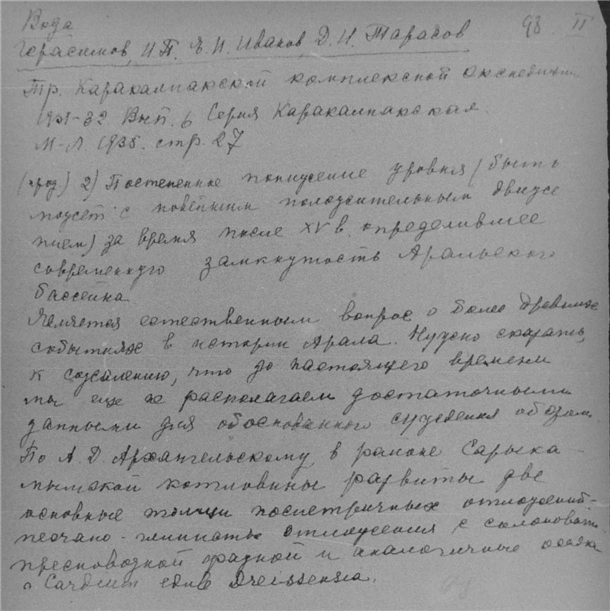 Вода 93 II
Герасимов, И.П. Е.Н. Иванов, Д.И. Тарасов
Тр. Каракалпакской комплексной экспедиции
1931-32. Вып. 6 Серия Каракалпакская.
М-Л 1935. стр. 27
(прод) 2) Постепенное понижение уровня (быть
может с новейшим положительным движе
нием) за время после XV в определившее
современную замкнутость Аральского
бассейна
Является естественным вопрос о более древних
событиях в истории Арала. Нужно сказать,
к сожалению, что до настоящего времени
мы еще не располагаем достаточными
данными для обоснованного суждения об этом.
По А.Д. Архангельскому в районе Сарыка-
мышской котловины развиты две
основные толщи послетретичных отложений-
песчано-глинистые отложения с солоновато-
пресноводной фауной и аналогичные осадки
с Cardium edule Dreissensia.